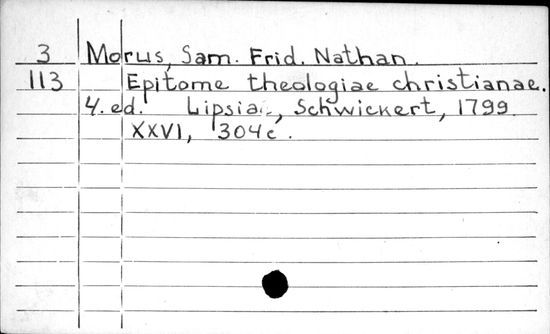 3 Morus, Sam. Frid. Nathan.
113 Epitome theologiae christianae.
4. ed. Lipsiae, Schwickert, 1799
XXVI, 304 c.